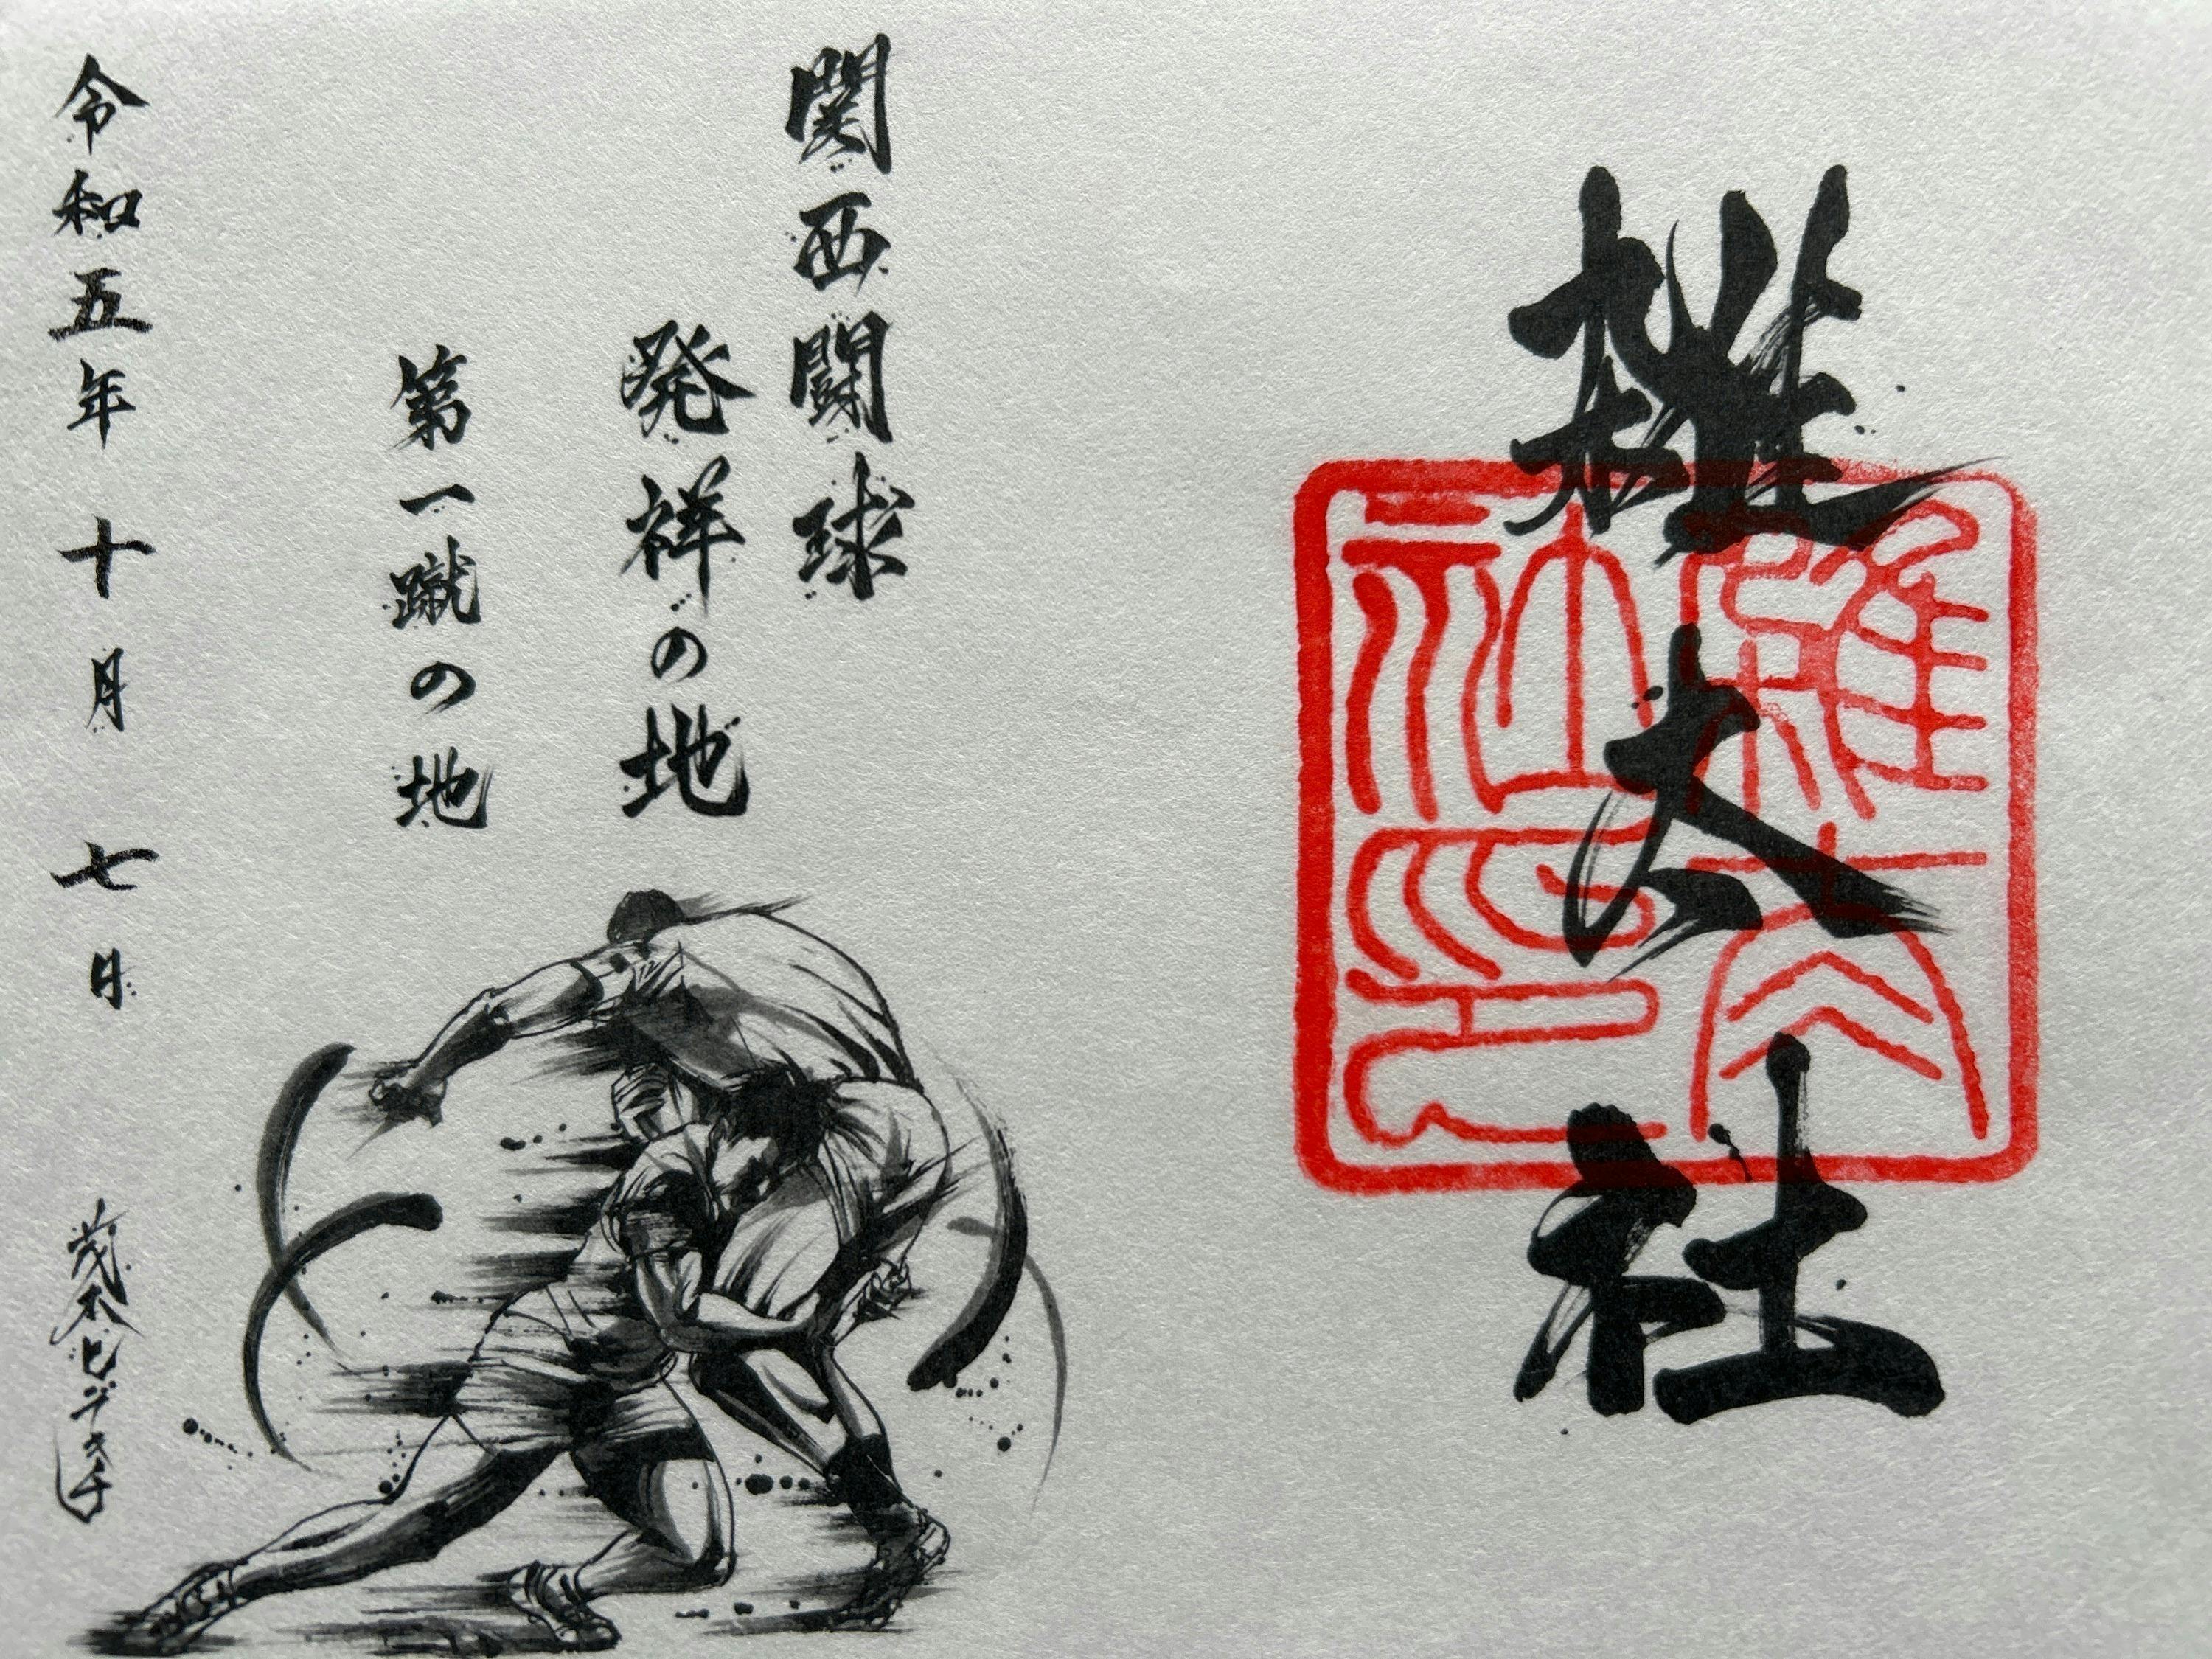 雑太社
雑太社之印
関西闘球
発祥の地
第一蹴の地
令和五年十月七日
茂本ヒデキチ